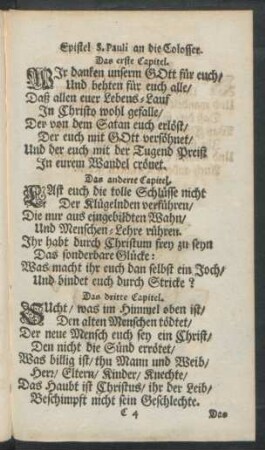 Epistel S. Pauli an die Colosser.
Das erste Capitel.
WIr danken unserm GOtt für euch/
Und behten für euch alle/
Daß allen euer Lebens-Lauf
In Christo wohl gefalle/
Der von dem Satan euch erlöst/
Der euch mit GOtt versöhnet/
Und der euch mit der Tugend Preist
In eurem Wandel crönet.
Das anderte Capitel.
LAst euch die tolle Schlüsse nicht
Der Klügelnden verführen/
Die nur aus eingebildten Wahn/
Und Menschen-Lehre rühren.
Ihr habt durch Christum frey zu seyn
Das sonderbare Glücke:
Was macht ihr euch dan selbst ein Joch/
Und bindet euch durch Stricke?
Das dritte Capitel.
SUcht/ was im Himmel oben ist/
Den alten Menschen tödtet/
Der neue Mensch euch sey ein Christ/
Den nicht die Sünd errötet/
Was billig ist/ thu Mann und Weib/
Herr/ Eltern/ Kinder/ Knechte/
Das Haubt ist Christus/ ihr der Leib/
Beschimpft nicht sein Geschlechte.
C 4 Das